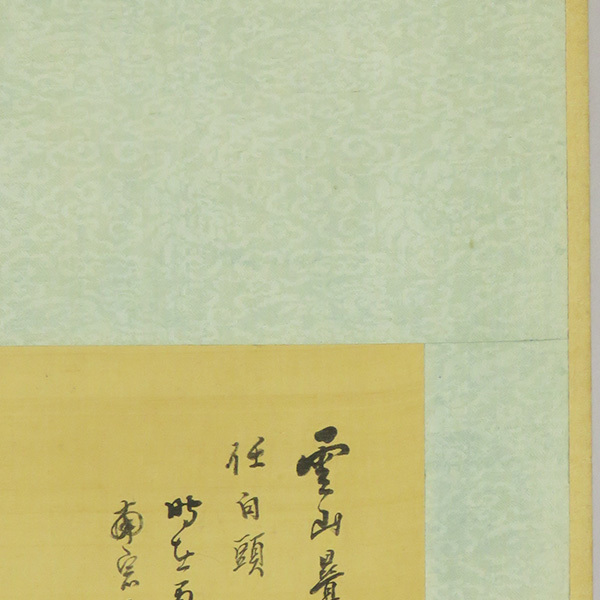 雲山疊
任白頭
時在
南宗